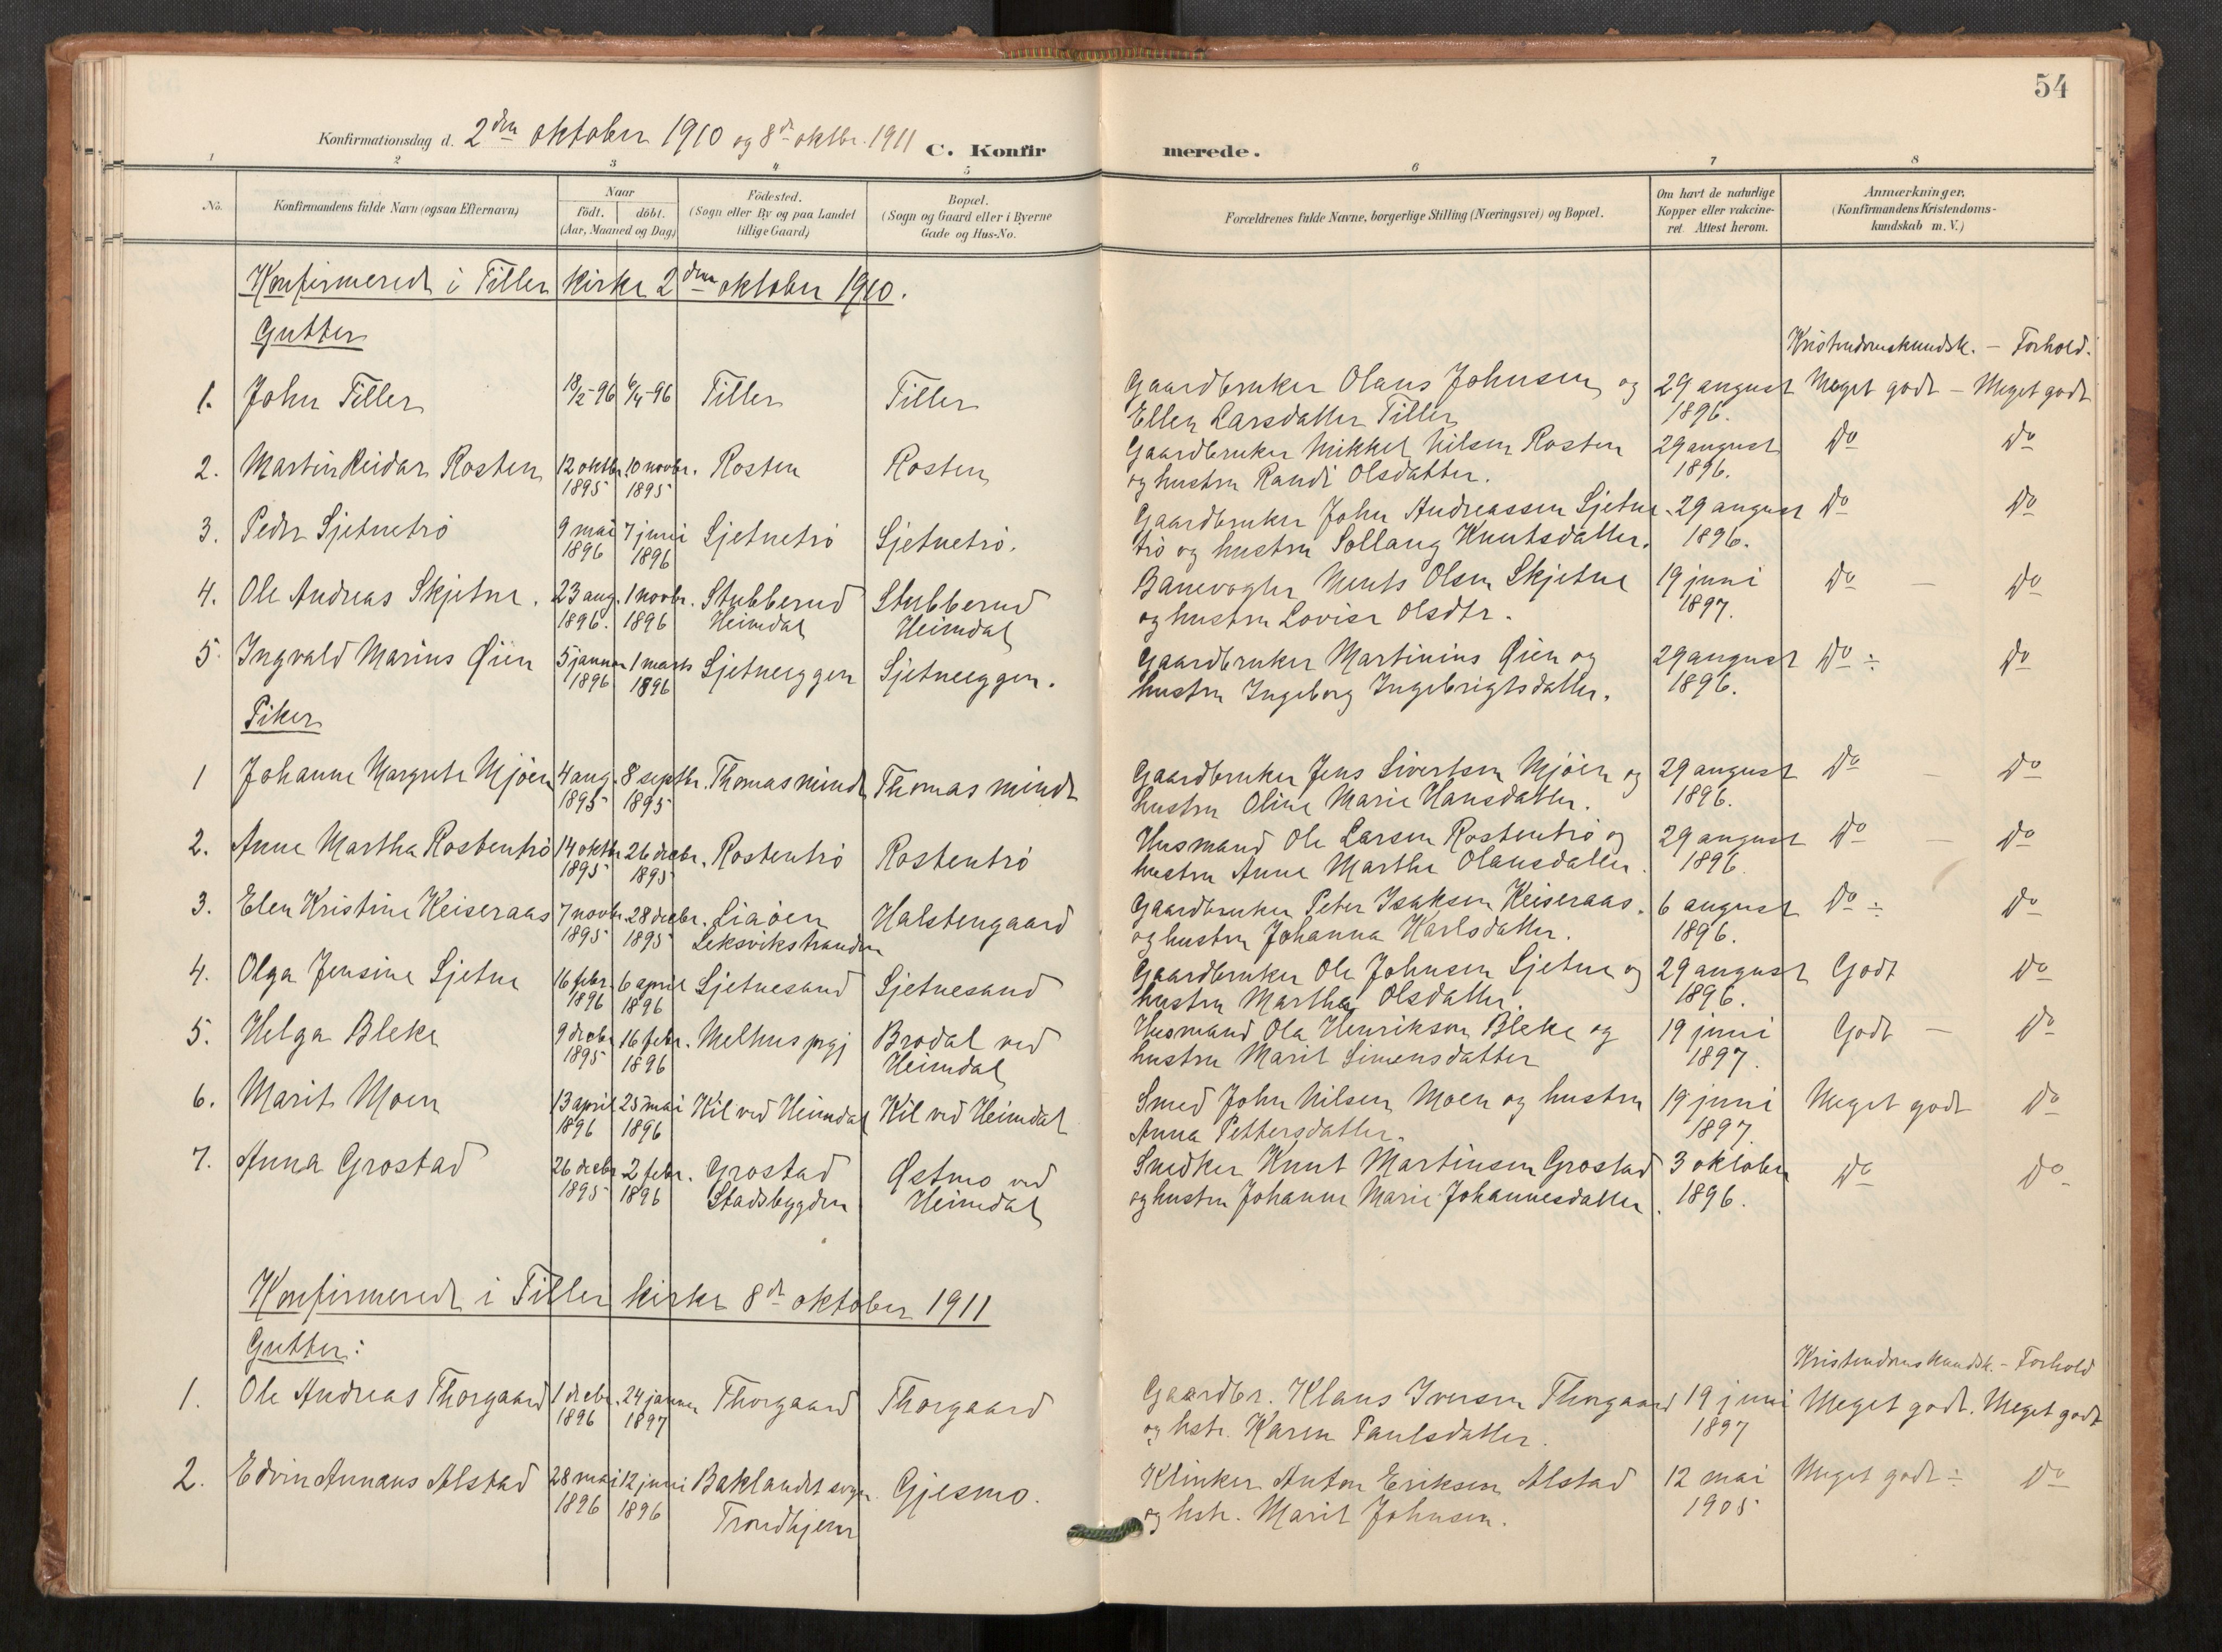 54
Konfirmationsdag d. 2den oktober 1910 og 8de oktbr. 1911
C. Konfirmerede.
1 2 3 4 5 6 7 8
No.
Konfirmandens fulde Navn (ogsaa Efternavn)
Naar
födt. döbt.
(Aar, Maaned og Dag)
Födested.
(Sogn eller By og paa Landet
tillige Gaard)
Bopæl.
(Sogn og Gaard eller i Byerne
Gade og Hus-No.
Forældrenes fulde Navne, borgerlige Stilling (Næringsvei) og Bopæl.
Om havt de naturlige
Kopper eller vakcine-
ret Attest herom.
Anmærkninger.
(Konfirmandens Kristendoms-
kundskab m. V.)
Konfirmerede i Tiller kirke 2den oktober 1910.
Gutter
Kristendomskundsk. – Forhold.
1. John Tiller 18/2-96 6/4-96 Tiller Tiller Gaardbruker Olaus Johnsen og 29 august Meget godt – Meget godt
Ellen Larsdatter Tiller 1896.
2. Martin Reidar Rosten 12 oktbr. 10 novbr. Rosten Rosten Gaardbruker Mikkel Nilsen Rosten 29 august Do Do
1895 1895 og hustru Randi Olsdatter. 1896.
3. Peder Sjetnetrö 9 mai 7 juni Sjetnetrö Sjetnetrö. Gaardbruker John Andreassen Sjetne- 29 august Do Do
1896 1896 trö og hustru Sollaug Knutsdatter. 1896.
4. Ole Andreas Skjetne. 23 aug. 1 novbr. Stubberud Stubberud Banevogter Ments Olsen Skjetne 19 juni Do – Do
1896. 1896 Heimdal Heimdal og hustru Lovise Olsdtr. 1897.
5. Ingvald Marius Øien 5 januar 1 marts Sjetneeggen Sjetneeggen. Gaardbruker Martinius Øien og 29 august Do ÷ Do
1896 1896 hustru Ingeborg Ingebrigtsdatter. 1896.
Piker
1 Johanne Margrete Mjöen 4 aug. 8 septbr. Thomasminde Thomasminde Gaardbruker Jens Sivertsen Mjöen og 29 august Do – Do
1895 1895 hustru Oline Marie Hansdatter. 1896.
2. Anne Martha Rostentrö 14 oktbr. 26 decbr. Rostentrö Rostentrö Husmand Ole Larsen Rostentrö og 29 august Do – Do
1895 1895 hustru Anne Marthe Olausdatter. 1896
3. Elen Kristine Keiseraas 7 novbr. 28 decbr. Liaöen Halstengaard Gaardbruker Peter Isaksen Keiseraas. 6 august Do ÷ Do
1895 1895 Leksvikstranden og hustru Johanna Karlsdatter. 1896.
4. Olga Jensine Sjetne 16 febr. 6 april Sjetnesand Sjetnesand Gaardbruker Ole Johnsen Sjetne og 29 august Godt Do
1896 1896 hustru Martha Olsdatter. 1896.
5. Helga Bleke 9 decbr 16 febr. Melhus prgj Brodal ved Husmand Ola Henriksen Bleke og 19 juni Godt – Do
1895 1896 Heimdal hustru Marit Simensdatter 1897.
6. Marit Moen 13 april 25 mai Kil ved Heimdal Kil ved Heimdal Smed John Nilsen Moen og hustru 19 juni Meget godt Do
1896 1896 Anna Pettersdatter. 1897.
7. Anna Grostad 26 decbr 2 febr. Grostad Østmo ved Snedker Knut Martinsen Grostad 3 oktober Do Do
1895 1896 Stadsbygden Heimdal og hustru Johanne Marie Johannesdatter. 1896.
Konfirmerede i Tiller kirke 8de oktober 1911
Gutter:
Kristendomskundsk. – Forhold
1. Ole Andreas Thorgaard 1 decbr. 24 januar Thorgaard Thorgaard Gaardbr. Klaus Iversen Thorgaard 19 juni Meget godt. Meget godt
1896 1897 og hstr. Karen Paulsdatter. 1897
2. Edvin Annæus Alstad 28 mai 12 juni Baklandet sogn Gjesmo. Klinker Anton Eriksen Alstad 12 mai Meget godt ÷ Do
1896 1896 Trondhjem og hstr. Marit Johnsen. 1905